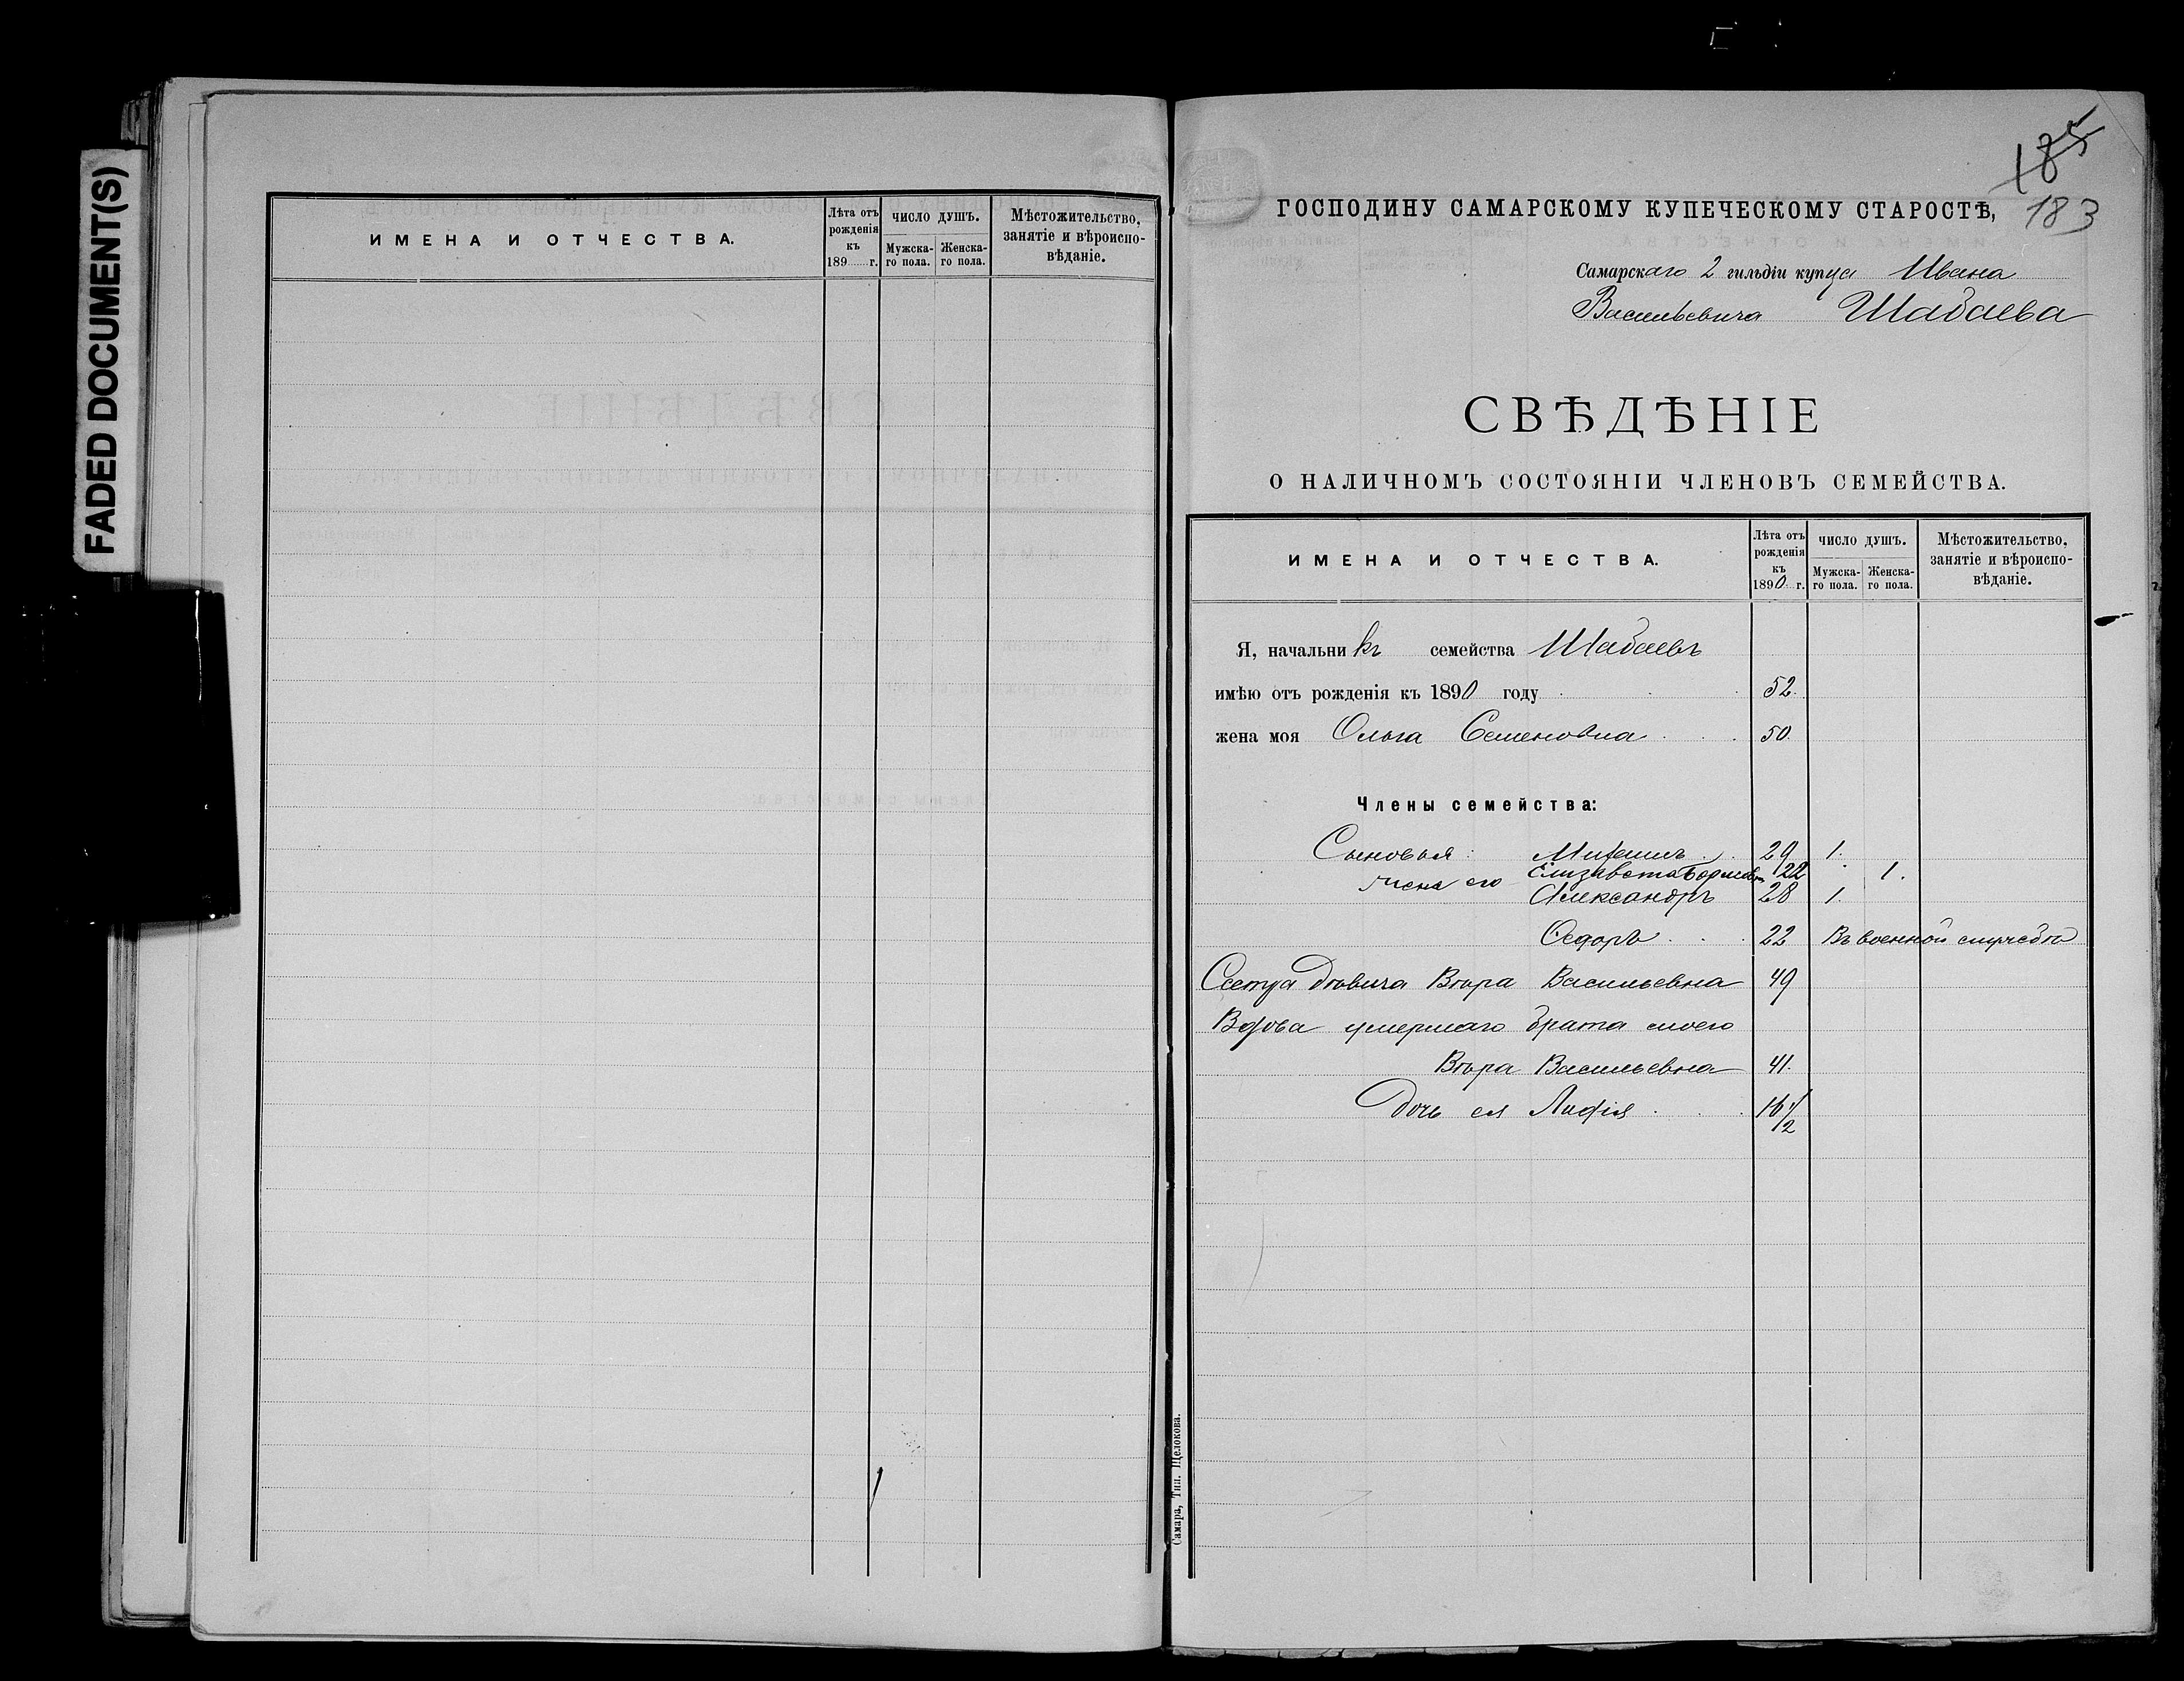 FADED DOCUMENT(S)
ИМЕНА И ОТЧЕСТВА.
Лѣта отъ рожденія къ 189 г.
ЧИСЛО ДУШЪ.
Мужска-го пола.
Женска-го пола.
Мѣстожительство, занятіе и вѣроиспо-вѣданіе.
185
183
ГОСПОДИНУ САМАРСКОМУ КУПЕЧЕСКОМУ СТАРОСТѢ,
Самарскаго 2 гильдіи купца Ивана
Васильевича Шабаева
СВѢДѢНІЕ
О НАЛИЧНОМЪ СОСТОЯНІИ ЧЛЕНОВЪ СЕМЕЙСТВА.
ИМЕНА И ОТЧЕСТВА.
Лѣта отъ рожденія къ 1890 г.
ЧИСЛО ДУШЪ.
Мужска-го пола.
Женска-го пола.
Мѣстожительство, занятіе и вѣроиспо-вѣданіе.
Я, начальникъ семейства Шабаевъ
имѣю отъ рожденія къ 1890 году 52.
жена моя Ольга Семеновна 50.
Члены семейства:
Сыновья: Михаилъ 29 1.
жена его Елизавета Борисовн 22 1.
Александръ 28 1.
Ѳедоръ 22 Въ военной службѣ
Сестра дѣвица Вѣра Васильевна 49
Вдова умершаго брата моего
Вѣра Васильевна 41.
Дочь ея Лидія 16 1/2
Самара, Тип. Щелокова.